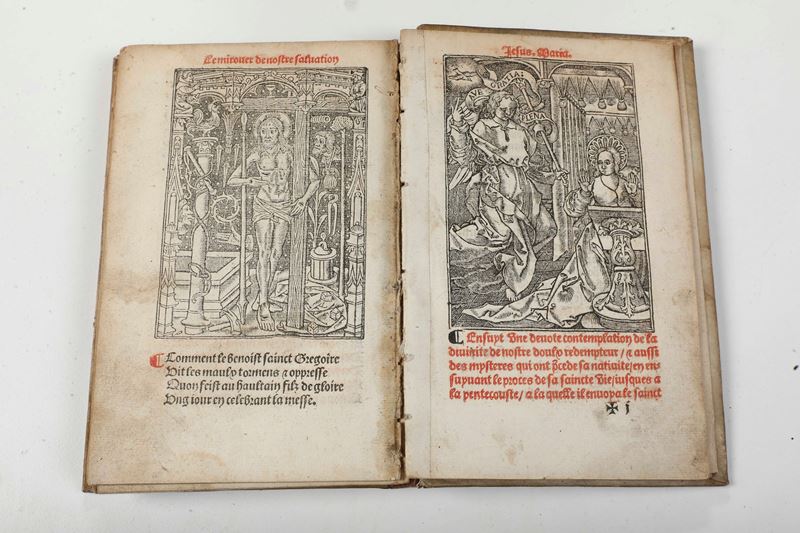 Le mirouer de nostre salvation
Comment le benoist sainct Gregoire
Vit les maulx tormens & oppresse
Quon feist au haultain filz de gloire
Ung iour en celebrant la messe.
Jesus. Maria.
PLENA
Ensuyt Une devote contemplation de la
divinite de nostre doulx redempteur / & aussi
des mysteres qui ont pcede sa nativite / en en
suyvant le proces de sa saincte Vie / iusques a
la penthecouste / a la quelle il envoya le sainct
✠ j